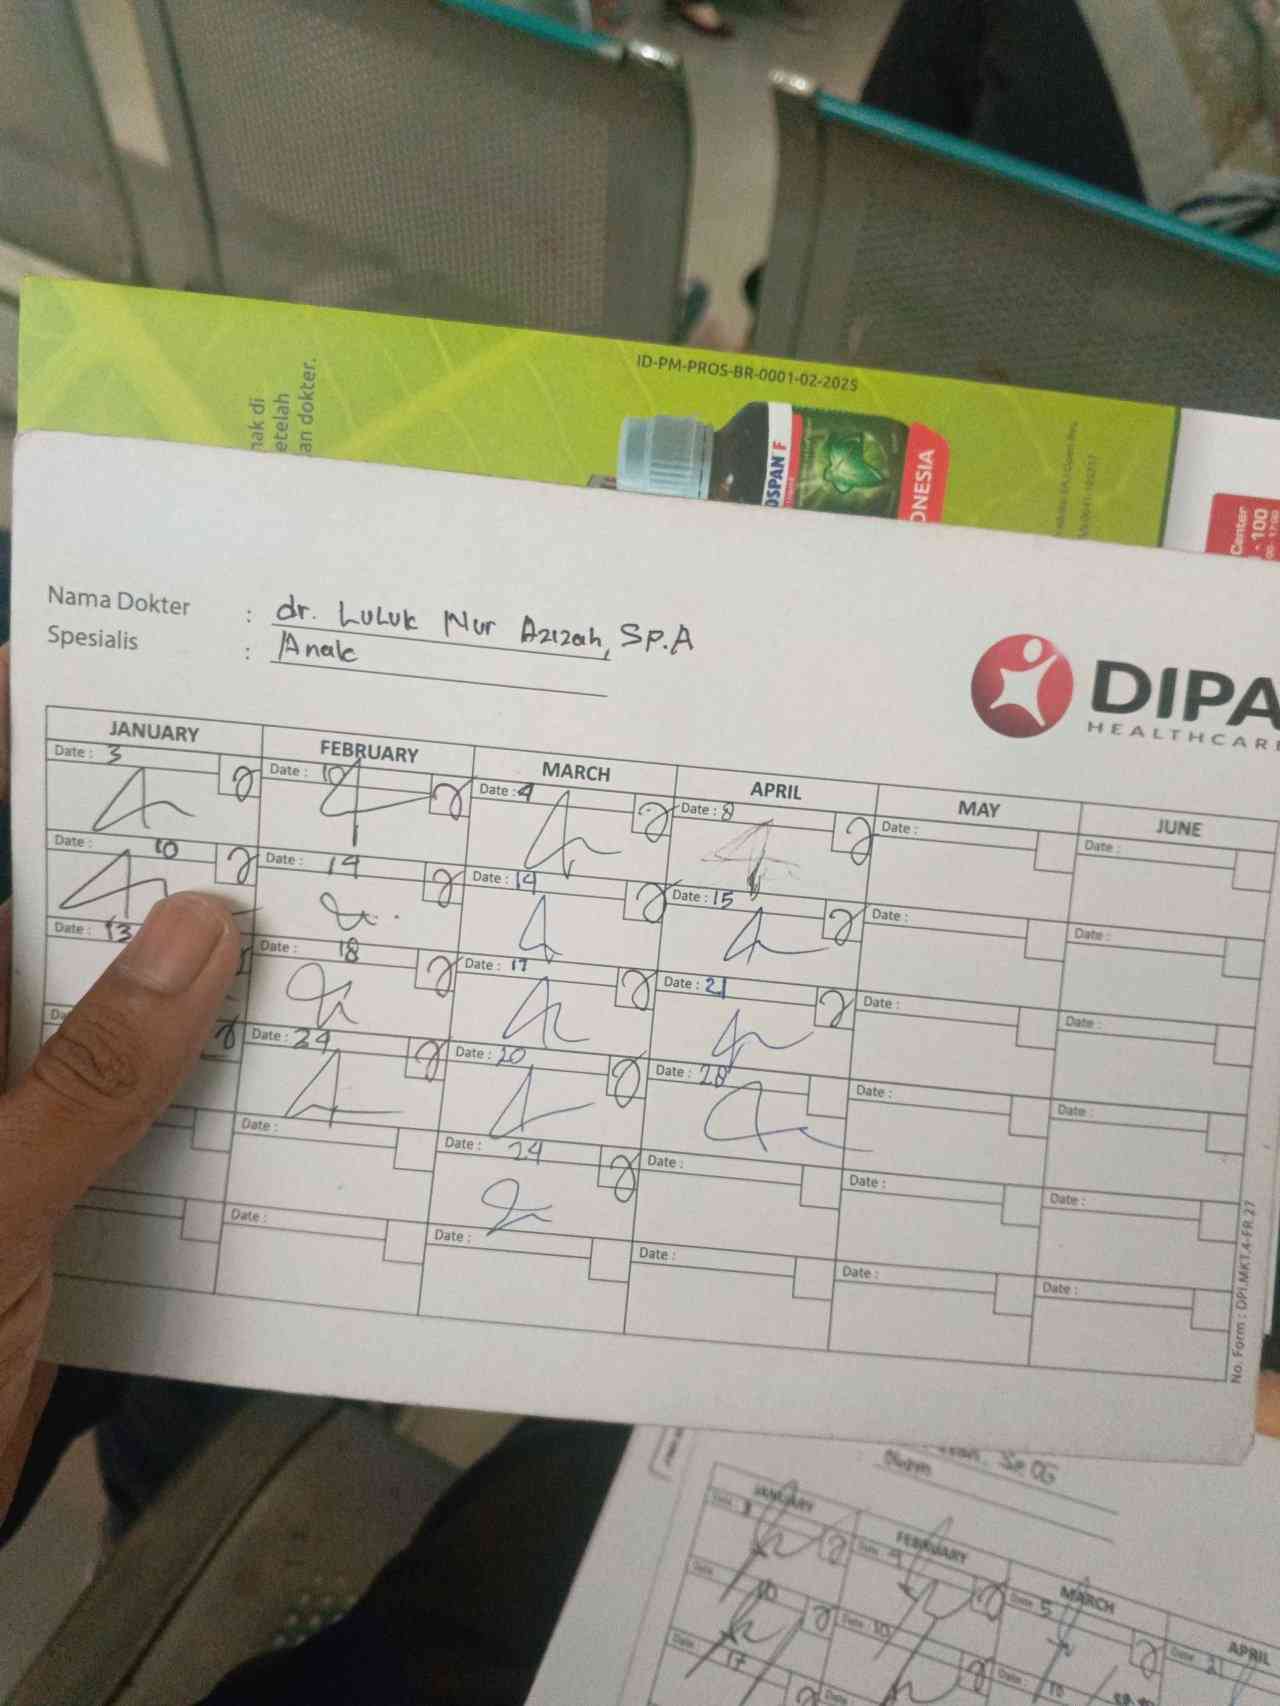 ID-PM-PROS-BR-0001-02-2025
nak di
etelah
an dokter.
OSPAN F
ONESIA
Center
- 100
Nama Dokter : dr. Luluk Nur Azizah, Sp.A
Spesialis : Anak
DIPA
HEALTHCARE
JANUARY FEBRUARY MARCH APRIL MAY JUNE
Date : 3 Date : 10 Date : 4 Date : 8 Date : Date :
Date : 10 Date : 14 Date : 14 Date : 15 Date : Date :
Date : 13 Date : 18 Date : 17 Date : 21 Date : Date :
Da Date : 24 Date : 20 Date : 28 Date : Date :
Date : Date : 24 Date : Date : Date :
Date : Date : Date : Date : Date :
No. Form : DPI.MKT.4-FR.27
Sp.OG
JANUARY FEBRUARY MARCH APRIL
Date Date Date 5 Date 21
Date 10 Date 10 Date 18
Date 17